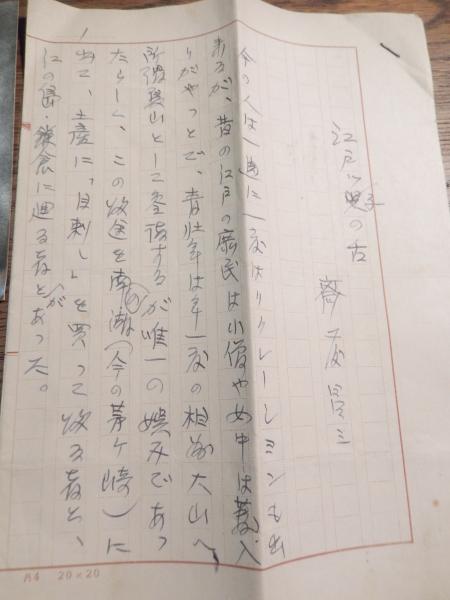 江戸ッ児の舌
今の人は一週に一度はリクレーションも出
来るが、昔の江戸の庶民は小僧や女中は藪入
りがやっとで、青壮年は年一度の相州大山へ
所謂 山として登後するが唯一の娯みであっ
たらしく、この帰途を南の湖(今の茅ヶ崎)に
出て、土産に「目刺し」を買って帰る者と、
江の島・鎌倉に廻る者とがあった。
B4 20×20